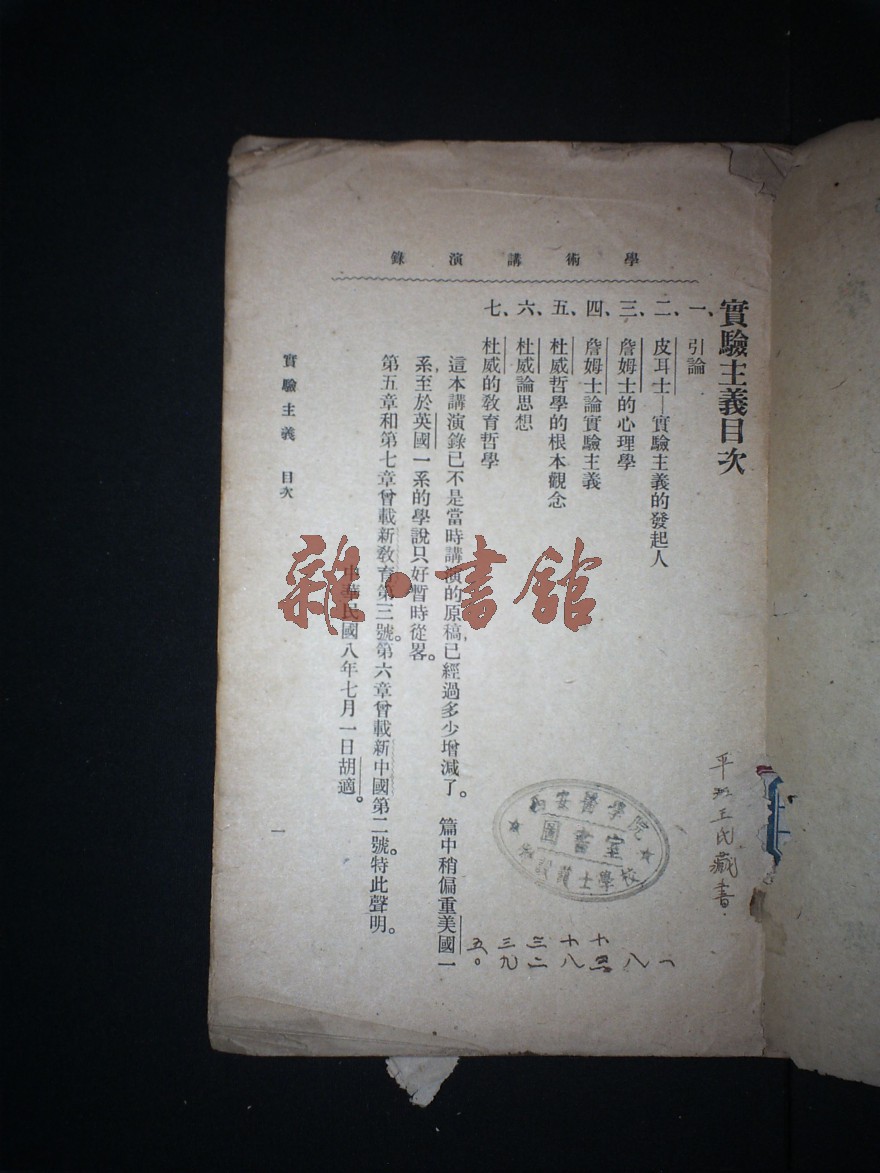 學術講演錄
實驗主義目次
一、引論
二、皮耳士—實驗主義的發起人
三、詹姆士的心理學
四、詹姆士論實驗主義
五、杜威哲學的根本觀念
六、杜威論思想
七、杜威的教育哲學
這本講演錄已不是當時講演的原稿,已經過多少增減了。篇中稍偏重美國一
系,至於英國一系的學說只好暫時從畧。
第五章和第七章曾載新教育第三號。第六章曾載新中國第二號。特此聲明。
中華民國八年七月一日胡適。
實驗主義 目次
一
雜·書館
安醫學院
圖書室
設護士學校
平 王氏藏書
一
八
十八
三二
三九
五〇